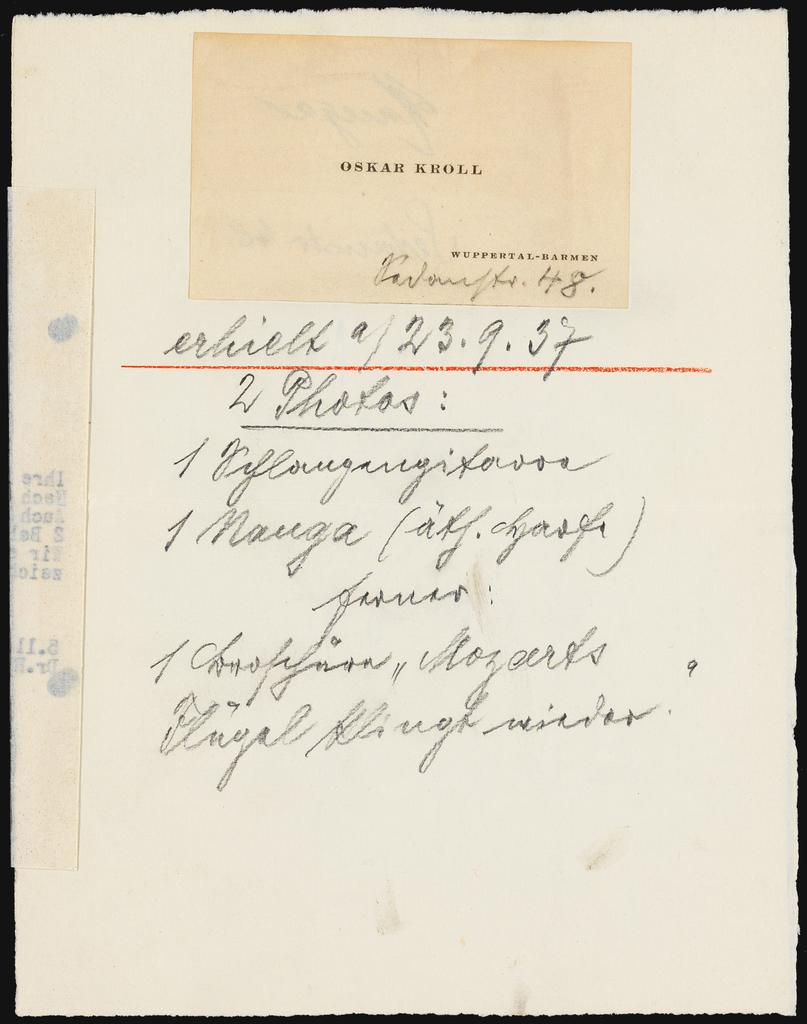 OSKAR KROLL
WUPPERTAL-BARMEN
Sedanstr. 48.
erhielt a/ 23.9.37
2 Photos:
1 Schlangengitarre
1 Nanga (äth. Harfe)
ferner:
1 Broschüre „Mozarts
Flügel klingt wieder."
Ihre
Nach
Auch
2 Be
Wir
zeich
5.11
Dr.